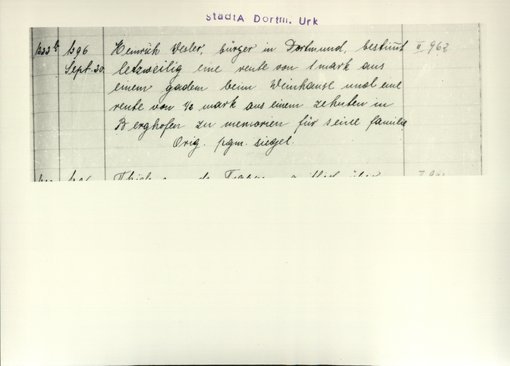 StadtA Dortm. Urk
1396 Heinrich Vesler, bürger in Dortmund, bestimt II, 963
Sept. 30. letzweilig eine rente von 1 mark aus
einem gadem beim Weinhause und eine
rente von ½ mark aus einem zehnten in
Berghofen zu memorien für seine familie
Orig. pgm. siegel.